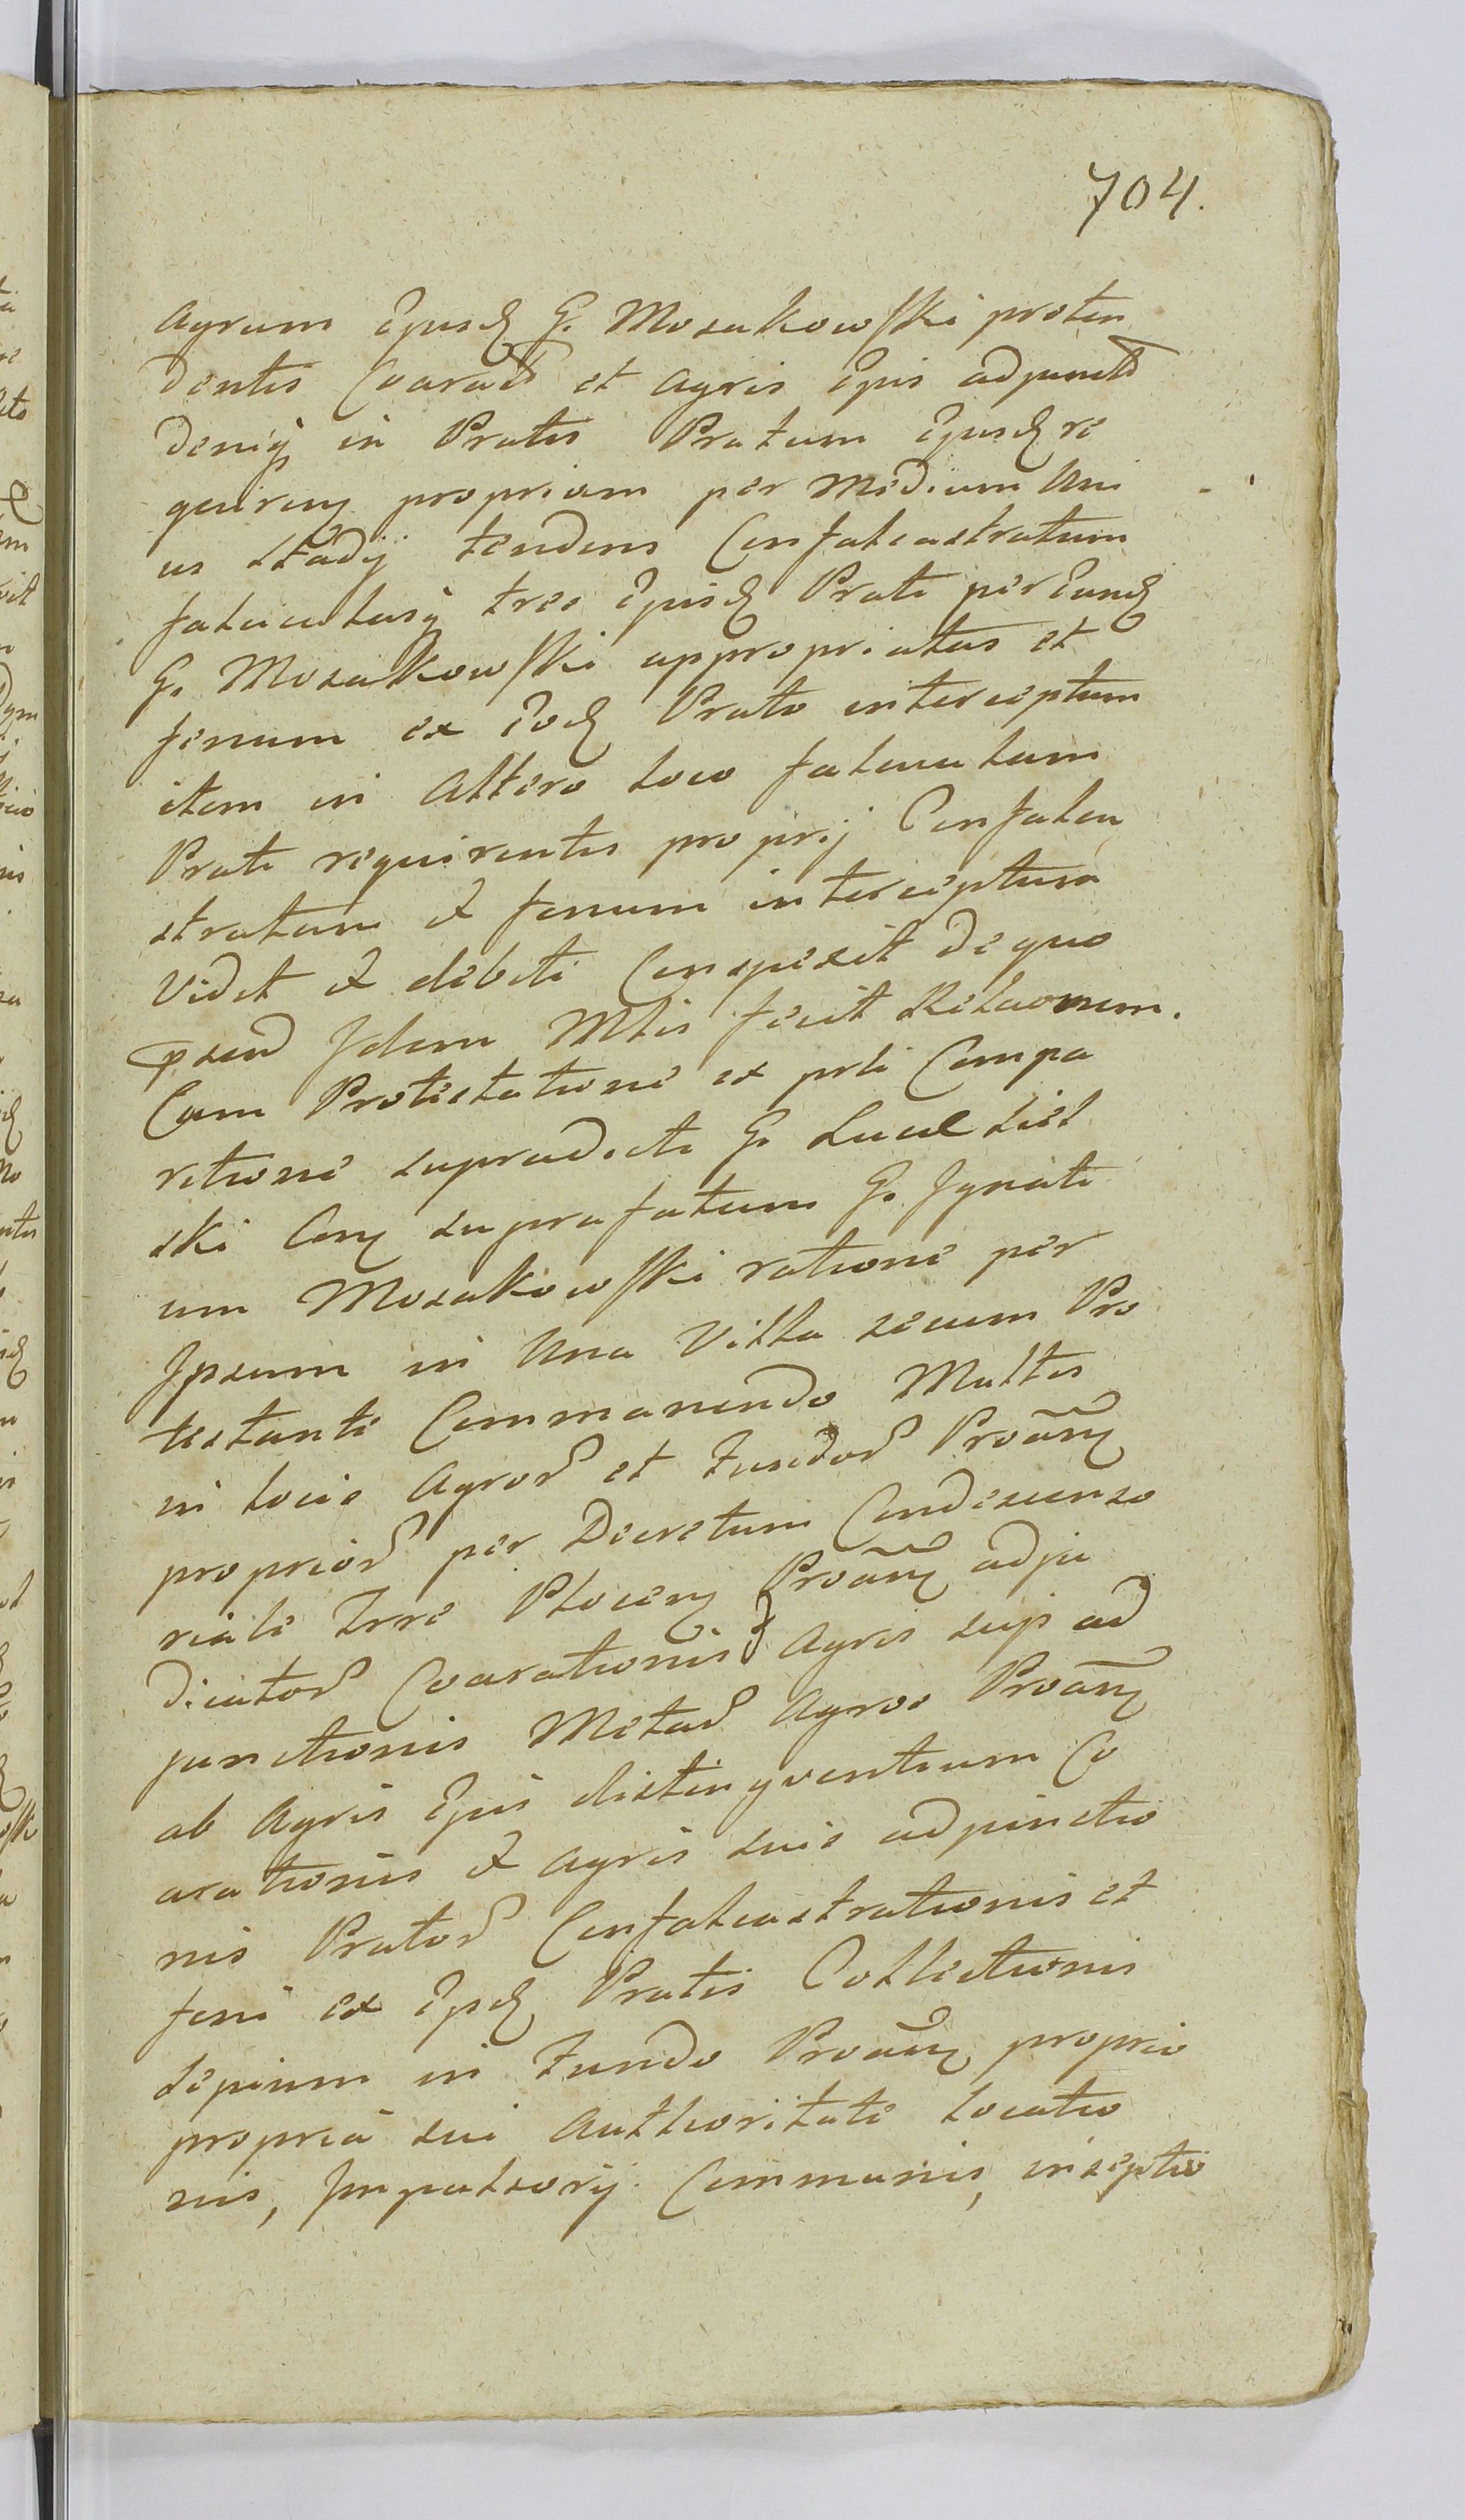 704.
Agrum Ejusd G. Mosakowski proten
dentis Coarat et Agris Ejus adjunct
Deniq in Pratis Pratum Ejusd re
quiren propriam per Medium Uni
us Stadij tendens Confalcastratum
falcicutasq tres Ejusd Prati per Eund
G. Mosakowski appropriatas et
fenum ex Eod Prato interceptum
item in Altero Loco falcicutam
Prati requirentis proprij Confalca
stratam et fenum interceptum
Vidit et debiti Conspexit De quo
Idem Mtis fecit Relaonem.
Cum Protestatione ex prti Compa
ritione supradicti G.
ski Con suprafatum G. Ignati
um Mosakowski ratione per
Ipsum in Una Villa secum Pro
testanti Commanendo Multis
in Locis Agror et Fundor Proan
proprior per Decretum Condescenso
riale Trre Plocen Proan adju
dicator Coarationis Agris suis ad
junctionis Metar Agros Proan
ab Agris Ejus distingventium Co
arationis et Agris suis adjunctio
nis Prator Confalcastrationis et
feni ex Ejsd Pratis Collectionis
Sepium in Fundo Proan proprio
propria sui Authoritate Locatio
nis, Impulsorij Communis, inseptio